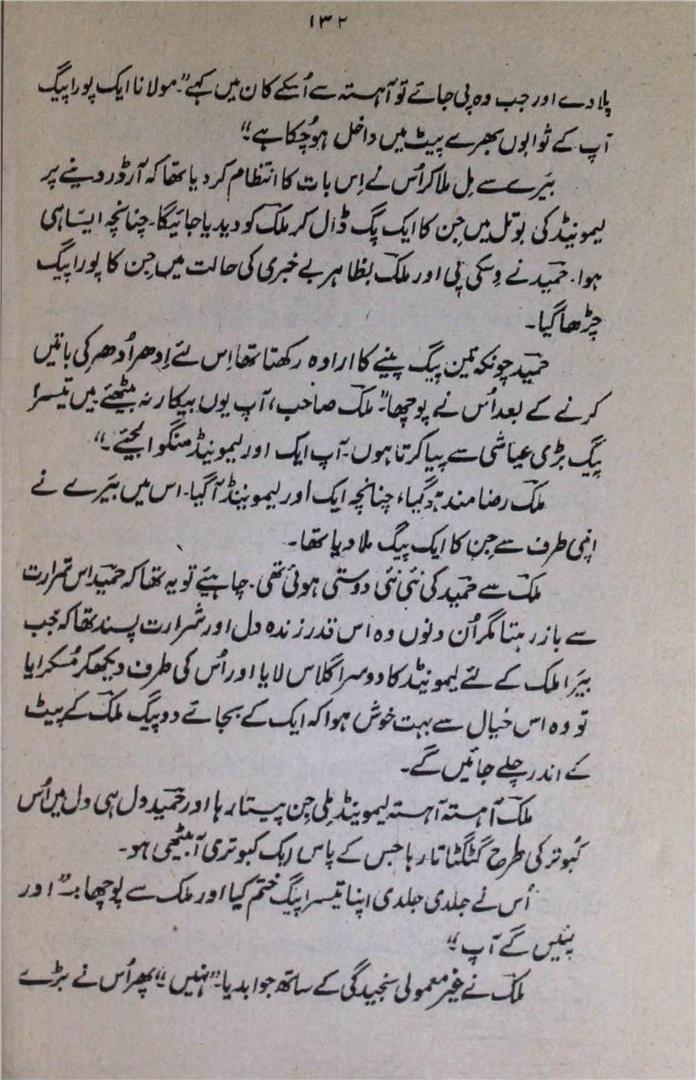 ۱۳۲
پلا دے اور جب وہ پی جائے تو آہستہ سے اُسکے کان میں کہے "۔ مولانا ایک پورا پیگ
آپ کے ثوابوں بھرے پیٹ میں داخل ہو چُکا ہے"
بَیرے سے مِل ملا کر اُس نے اِس بات کا انتظام کر دیا تھا کہ آرڈر دینے پر
لیمونیڈ کی بوتل میں جِن کا ایک پگ ڈال کر ملک کو دیدیا جائیگا۔ چنانچہ ایسا ہی
ہوا۔ حمید نے وسکی پی اور ملک بظاہر بے خبری کی حالت میں جِن کا پورا پیگ
چڑھا گیا۔
حمید چونکہ تین پیگ پینے کا ارادہ رکھتا تھا اِس لئے اِدھر اُدھر کی باتیں
کرنے کے بعد اُس نے پوچھا "۔ ملک صاحب، آپ یوں بیکار نہ بیٹھئے میں تیسرا
پیگ بڑی عیاشی سے پیا کرتا ہوں۔ آپ ایک اور لیمونیڈ منگوا لیجئے۔"
ملک رضا مند ہو گیا، چنانچہ ایک اور لیمونیڈ آ گیا۔ اس میں بَیرے نے
اپنی طرف سے جِن کا ایک پیگ ملا دیا تھا۔
ملک سے حمید کی نئی نئی دوستی ہوئی تھی۔ چاہیئے تو یہ تھا کہ حمید اس شرارت
سے باز رہتا مگر اُن دنوں وہ اس قدر زندہ دل اور شرارت پسند تھا کہ جب
بیرا ملک کے لئے لیمونیڈ کا دوسرا گلاس لایا اور اُس کی طرف دیکھ کر مُسکرایا
تو وہ اس خیال سے بہت خوش ہوا کہ ایک کے بجائے دو پیگ ملک کے پیٹ
کے اندر چلے جائیں گے۔
ملک آہستہ آہستہ لیمونیڈ مِلی جِن پیتا رہا اور حمید دل ہی دل میں اُس
کبوتر کی طرح گٹگٹاتا رہا جس کے پاس ایک کبوتری آ بیٹھی ہو۔
اُس نے جلدی جلدی اپنا تیسرا پیگ ختم کیا اور ملک سے پوچھا :۔ "اور
پئیں گے آپ"
ملک نے غیر معمولی سنجیدگی کے ساتھ جواب دیا۔ "نہیں"۔ پھر اُس نے بڑے